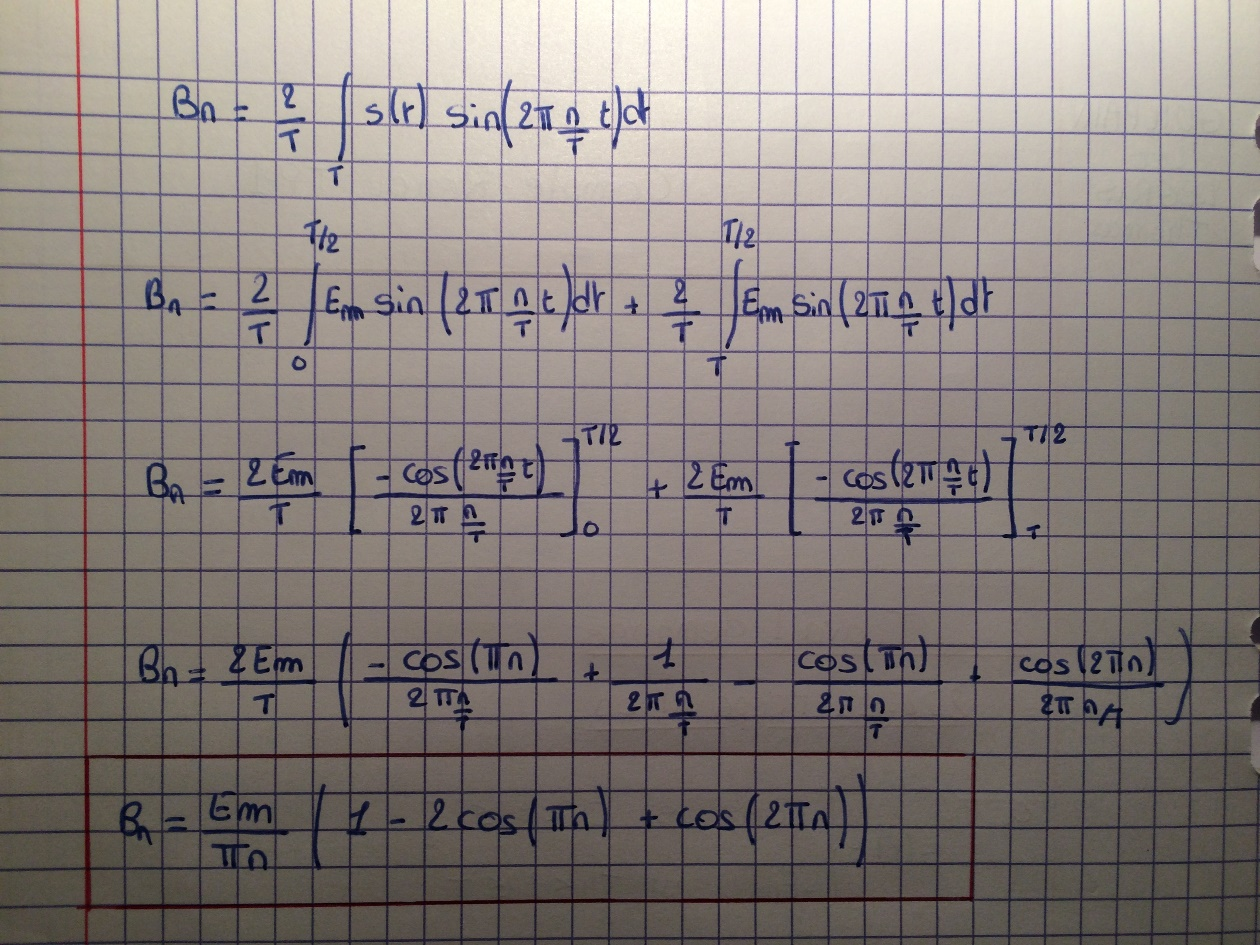 Bn = 2/T ∫_T s(t) sin(2π n/T t)dt
Bn = 2/T ∫_0^{T/2} Em sin(2π n/T t)dt + 2/T ∫_T^{T/2} Em sin(2π n/T t)dt
Bn = 2Em/T [-cos(2π n/T t)/(2π n/T)]_0^{T/2} + 2Em/T [-cos(2π n/T t)/(2π n/T)]_T^{T/2}
Bn = 2Em/T (-cos(πn)/(2π n/T) + 1/(2π n/T) - cos(πn)/(2π n/T) + cos(2πn)/(2π n/T))
Bn = Em/πn (1 - 2cos(πn) + cos(2πn))